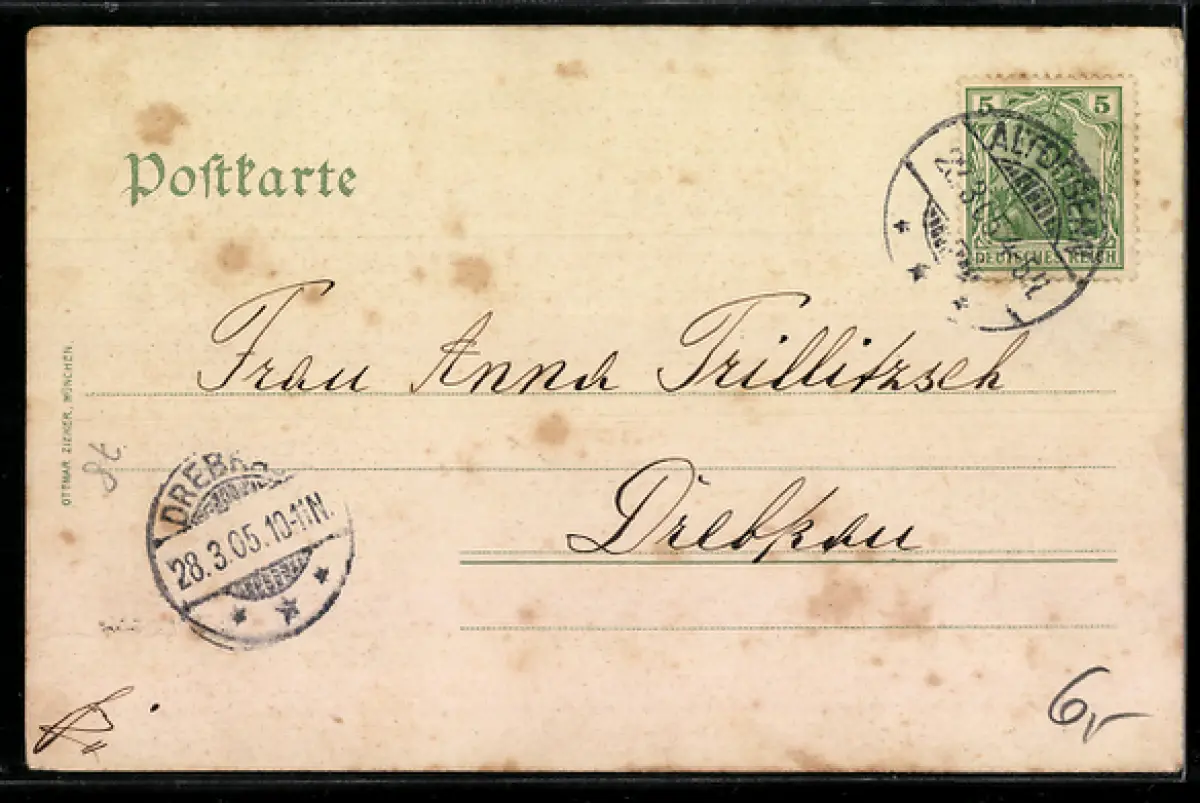 5 5
Postkarte
28.3.05
DEUTSCHES REICH
Frau Anna Trillitzsch
OTTMAR ZIEHER, MÜNCHEN.
Drebkau
28.3.05.10-11N.
6,-